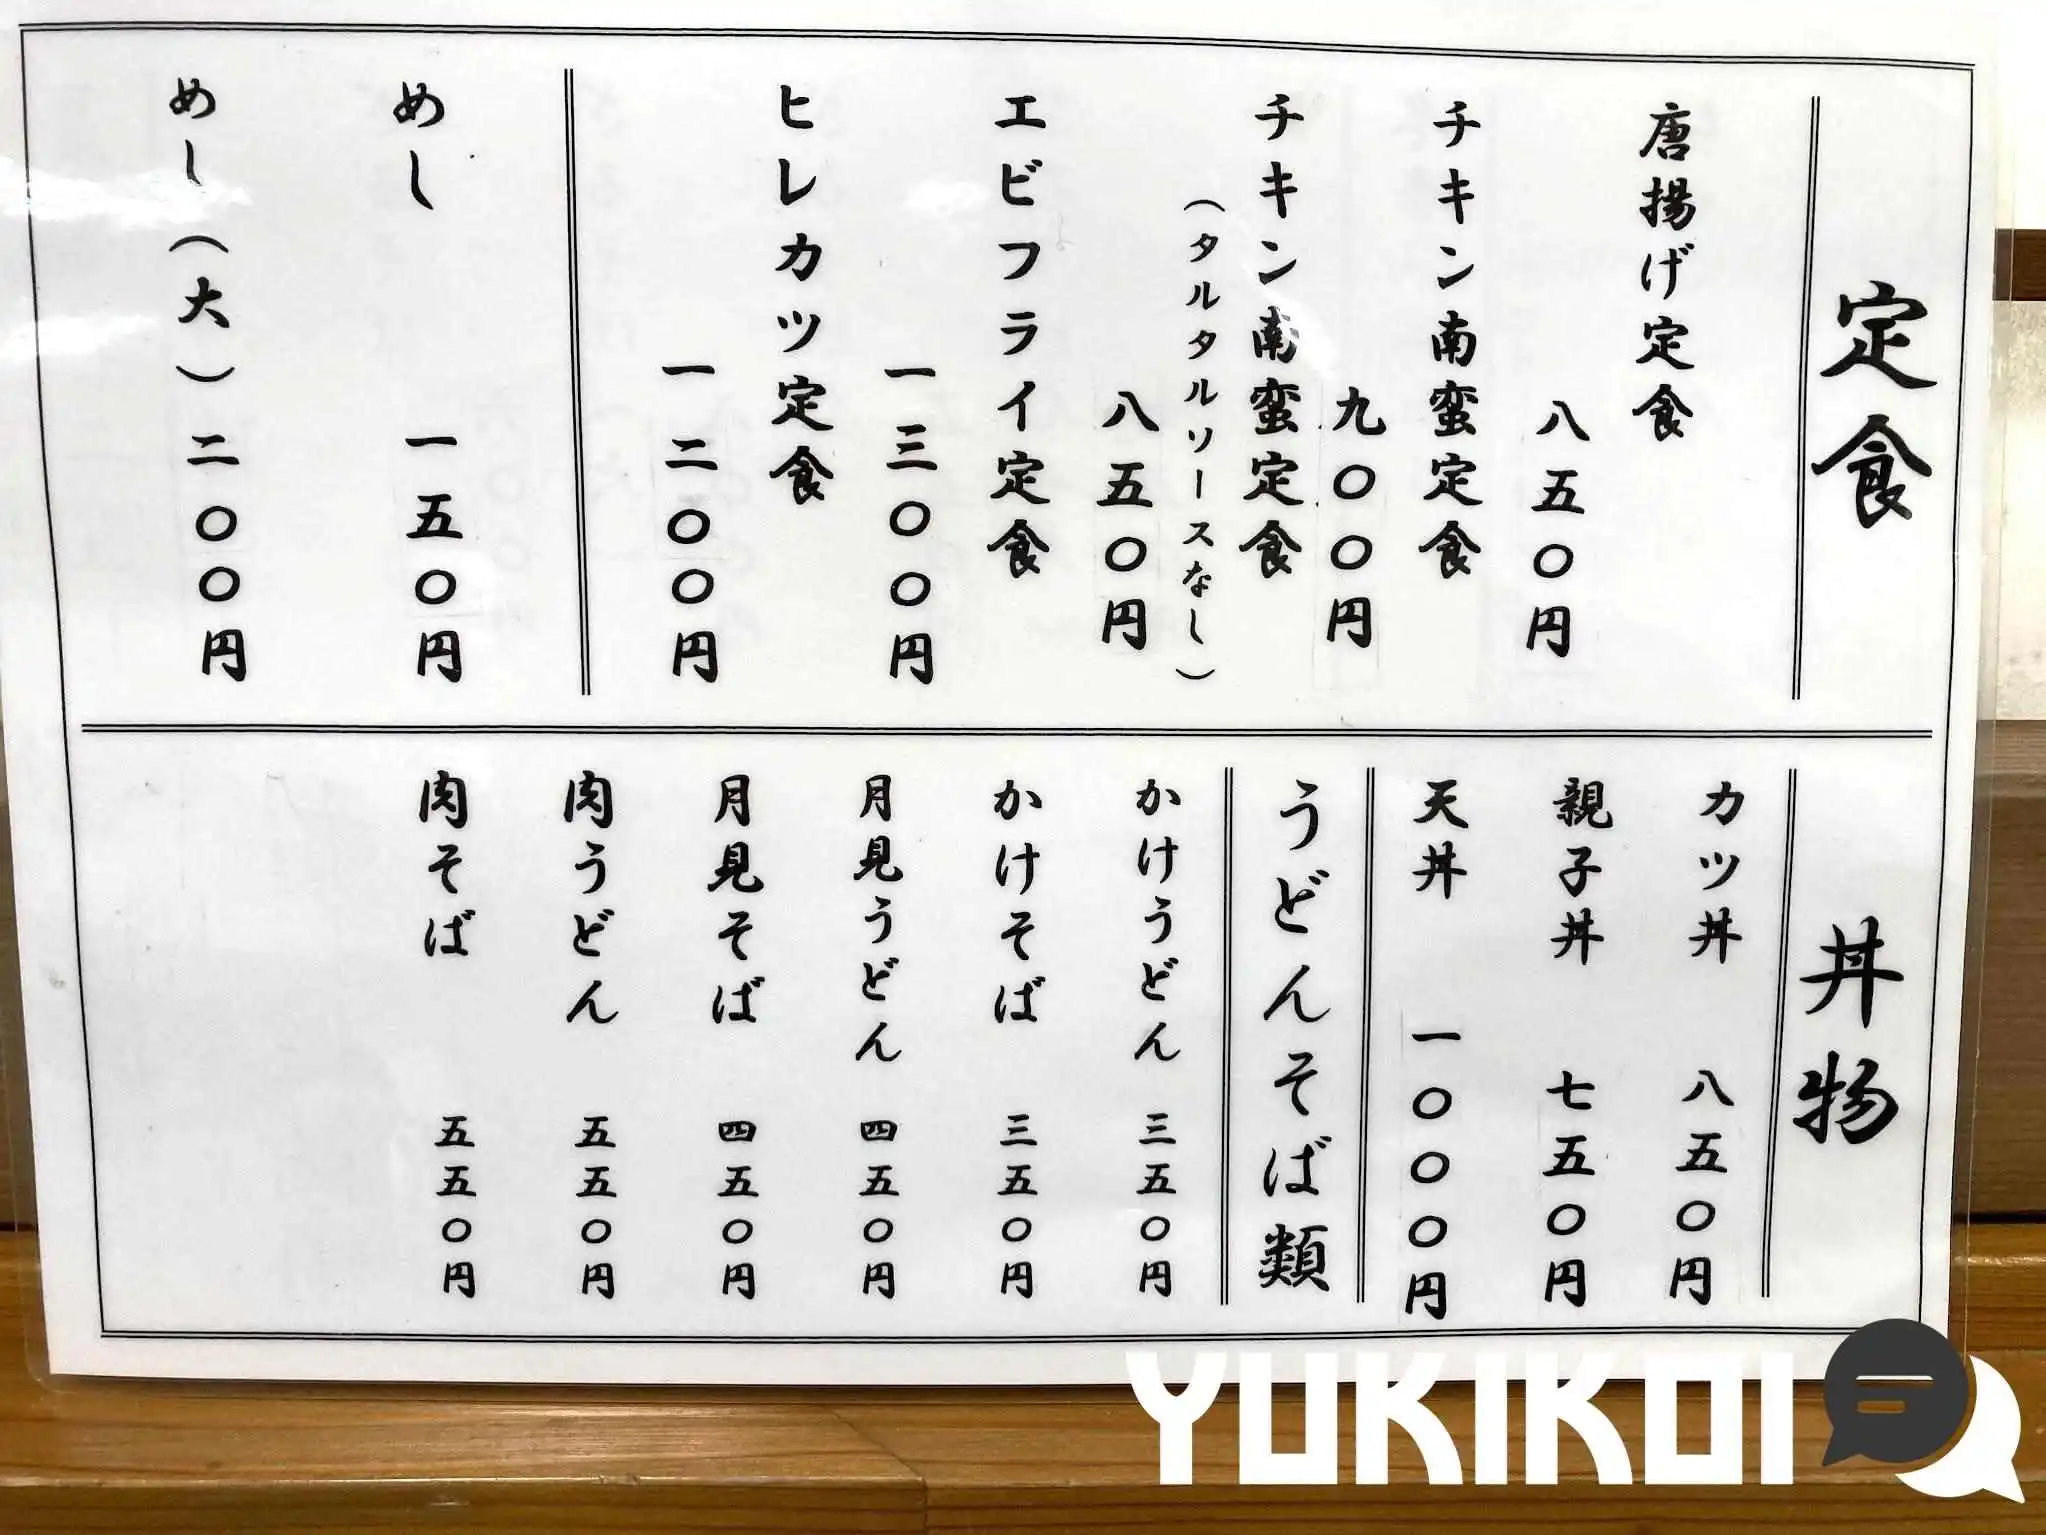 定食
唐揚げ定食
八五〇円
チキン南蛮定食
九〇〇円
チキン南蛮定食
（タルタルソースなし）
八五〇円
エビフライ定食
一三〇〇円
ヒレカツ定食
一二〇〇円
めし 一五〇円
めし（大）二〇〇円
丼物
カツ丼 八五〇円
親子丼 七五〇円
天丼 一〇〇〇円
うどんそば類
かけうどん 三五〇円
かけそば 三五〇円
月見うどん 四五〇円
月見そば 四五〇円
肉うどん 五五〇円
肉そば 五五〇円
YUKIKOI